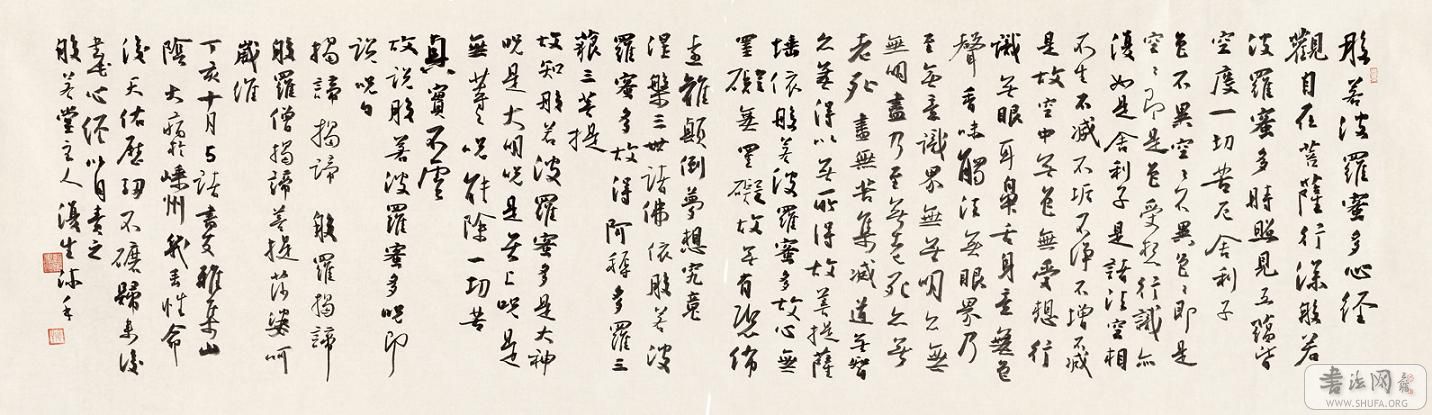 般若波羅蜜多心经
觀自在菩薩行深般若
波羅蜜多時照見五蘊皆
空度一切苦厄舍利子
色不異空々不異色々即是
空々即是色受想行識亦
復如是舍利子是諸法空相
不生不減不垢不淨不增不減
是故空中无色無受想行
識无眼耳鼻舌身意無色
聲香味觸法無眼界乃
至無意識界無无明亦無
無明盡乃至无老死亦无
老死盡無苦集滅道无智
亦无得以无所得故菩提薩
埵依般若波羅蜜多故心無
罣礙無罣礙故无有恐怖
遠離顛倒夢想究竟
涅槃三世諸佛依般若波
羅蜜多故得阿耨多羅三
藐三菩提
故知般若波羅蜜多是大神
咒是大明咒是无上咒是
無等々咒能除一切苦
真實不虛
故説般若波羅蜜多咒即
説咒曰
揭諦揭諦般羅揭諦
般羅僧揭諦菩提莎婆呵
歲維
丁亥十月与諸書友雅集山
陰大病於嵊州我丢性命
後天佑歷劫不磨歸来後
書心经以自責之
般若堂主人復生
書法网
WWW.SHUFA.ORG